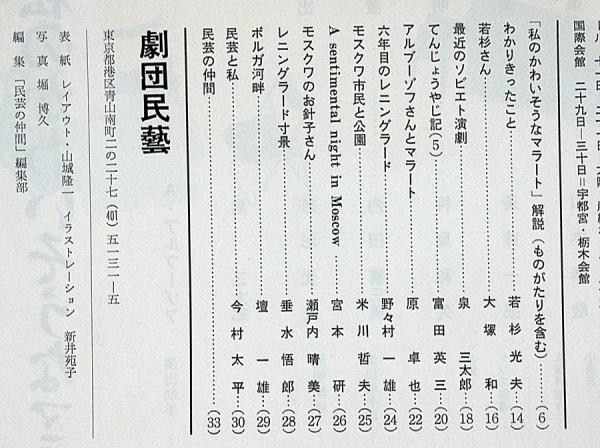 国際会館 二十九日―三十日=宇都宮・栃木会館
「私のかわいそうなマラート」解説(ものがたりを含む)……(6)
わかりきったこと……若杉光夫(14)
若杉さん……大塚和(16)
最近のソビエト演劇……泉三太郎(18)
てんじょうやじ記(5)……富田英三(20)
アルブーゾフさんとマラート……原卓也(22)
六年目のレニングラード……野々村一雄(24)
モスクワ市民と公園……米川哲夫(25)
A sentimental night in Moscow……宮本研(26)
モスクワのお針子さん……瀬戸内晴美(27)
レニングラード寸景……垂水悟郎(28)
ボルガ河畔……壇一雄(29)
民芸と私……今村太平(30)
民芸の仲間……(33)
劇団民藝
東京都港区青山南町二の二十七(401)五一三一―五
表紙 レイアウト・山城隆一 イラストレーション 新井苑子
写真 堀博久
編集「民芸の仲間」編集部